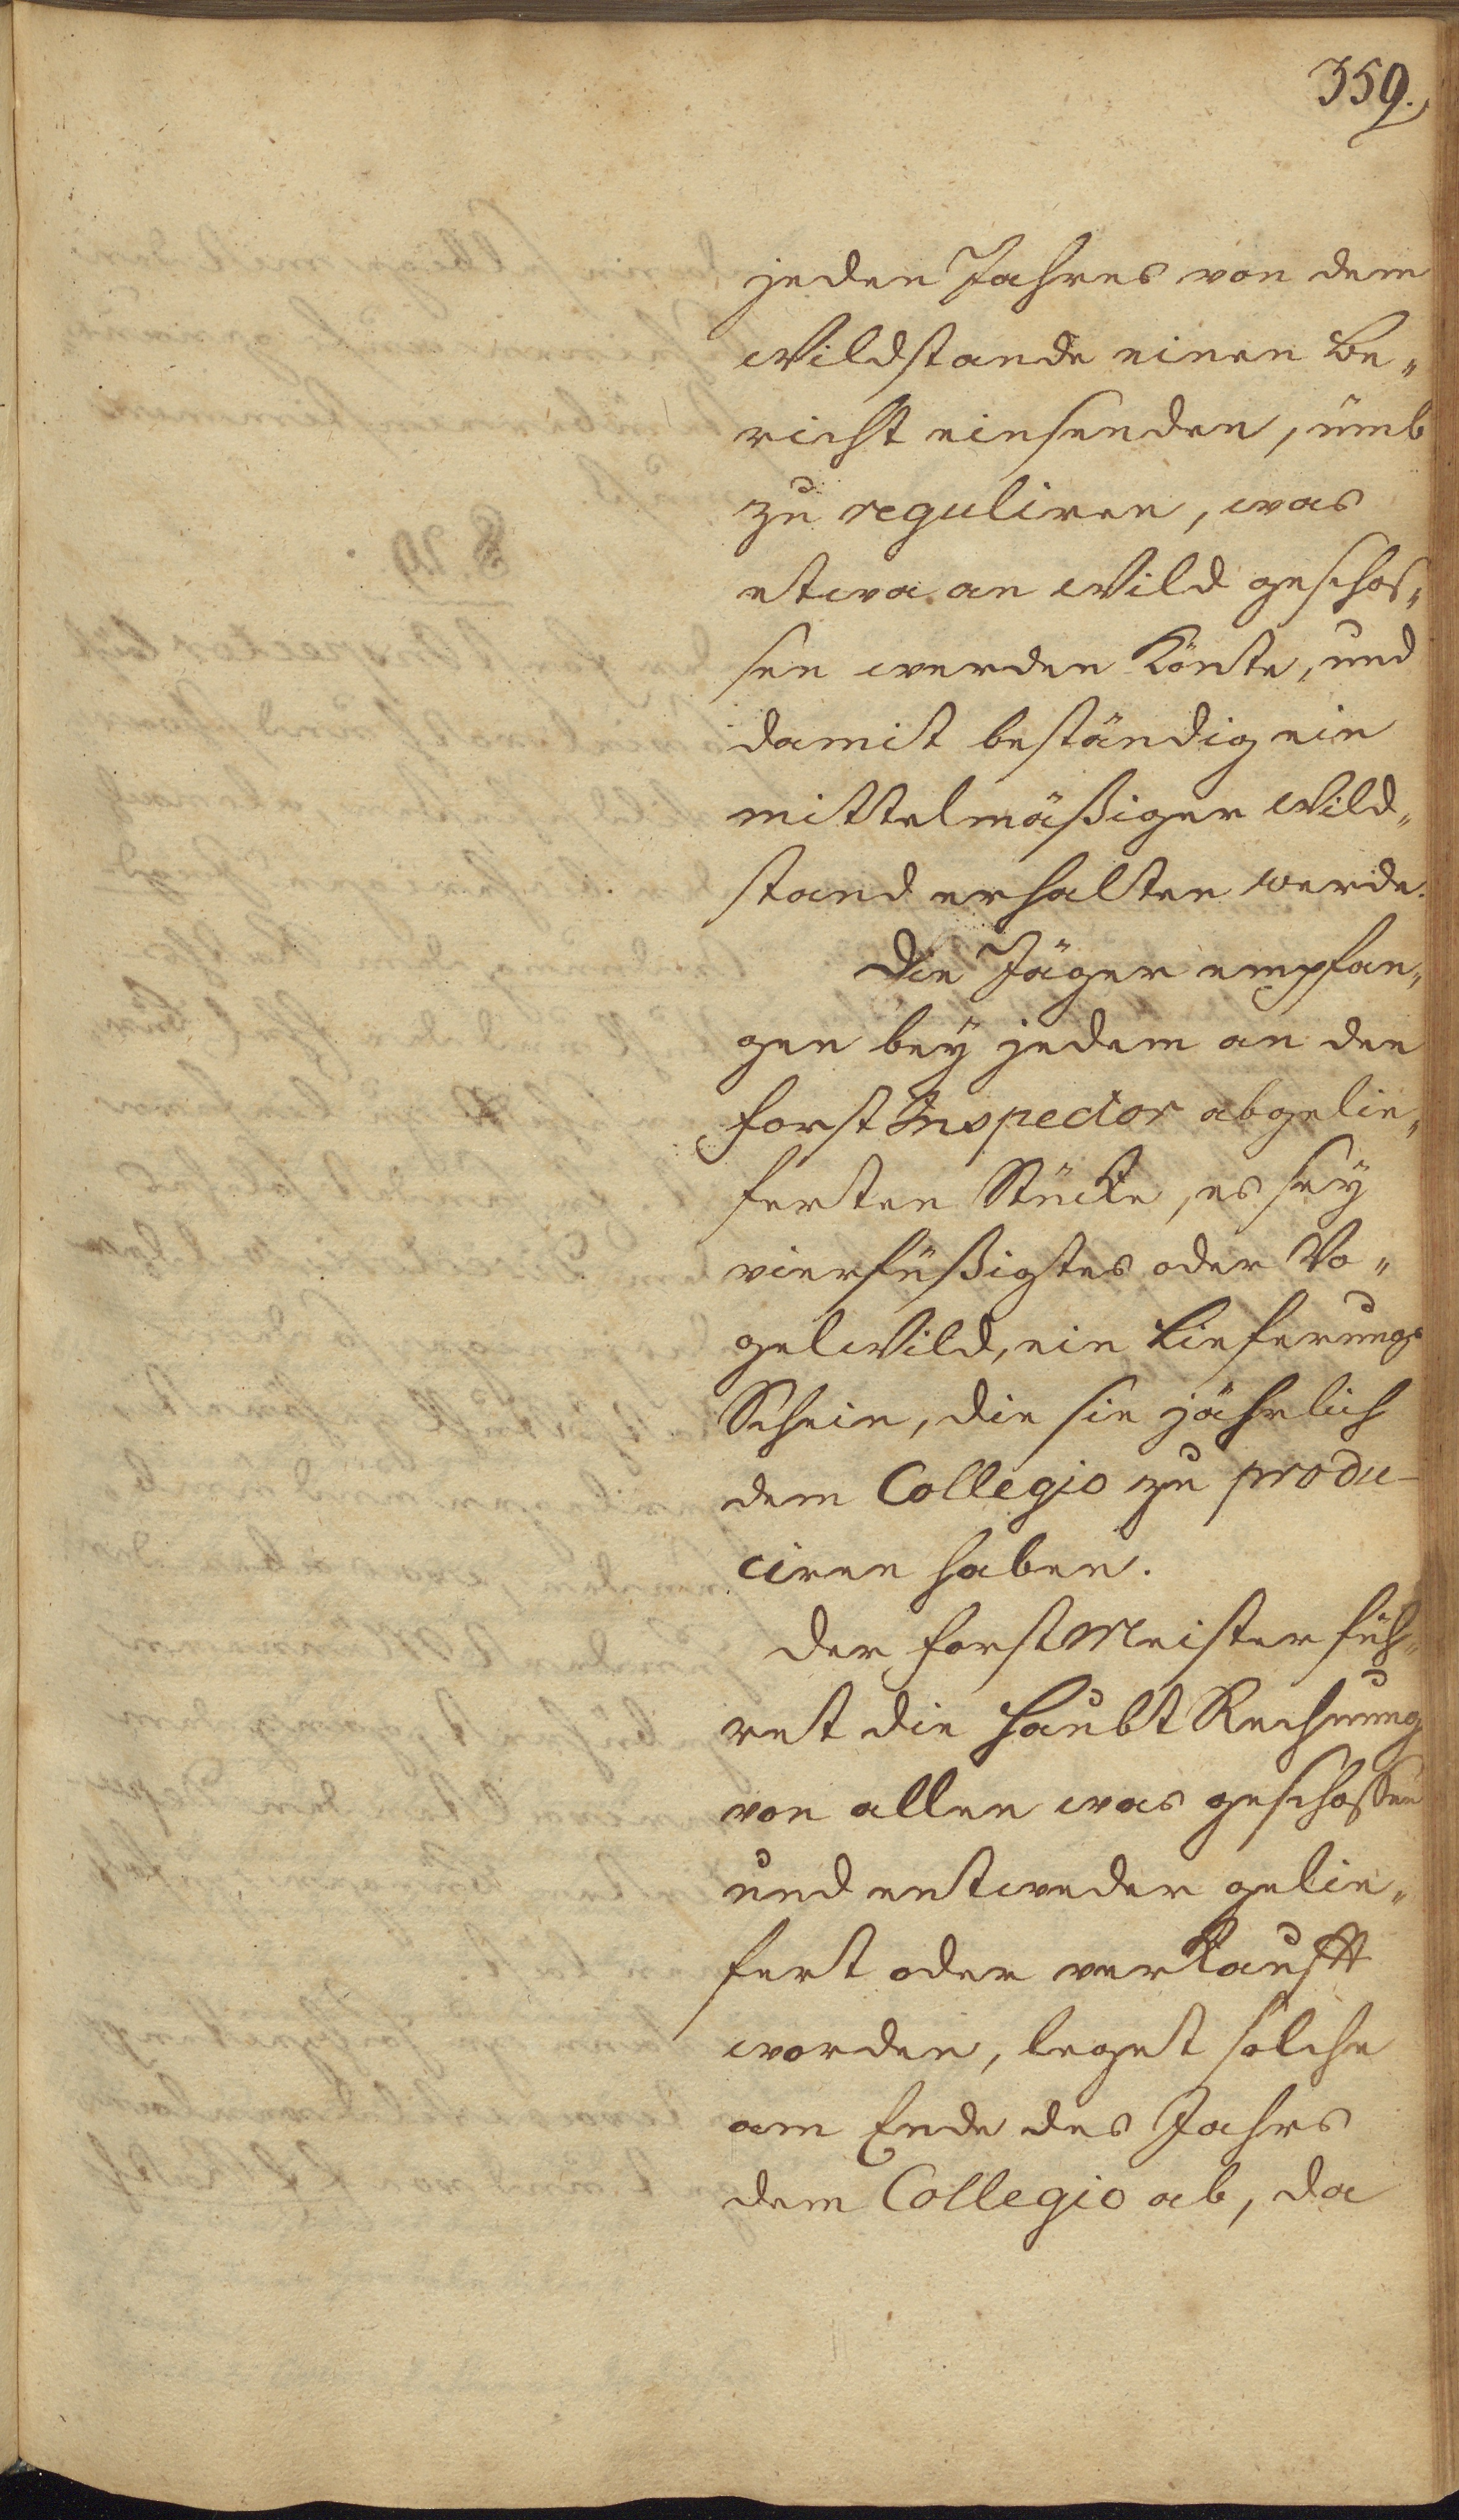 359.
jeden Jahres von dem
Wildstande einen Be„
richt einsenden, ümb
zu reguliren, was
etwa an Wild geschos„
sen werden könte, und
damit beständig ein
mittelmäßiger Wild„
stand erhalten werde.
Die Jäger empfan„
gen beÿ jedem an den
Forst Inspector abgelie„
ferten Stücke, es seÿ
vierfüßigtes oder Vo„
gelWild, ein Lieferungs
Schein, die sie jährlich
dem Collegio zu produ-
ciren haben.
Der ForstMeister füh„
ret die Haubt Rechnung
von allen was geschossen
und entweder gelie„
fert oder verkaufft
worden, leget solche
am Ende des Jahrs
dem Collegio ab, da